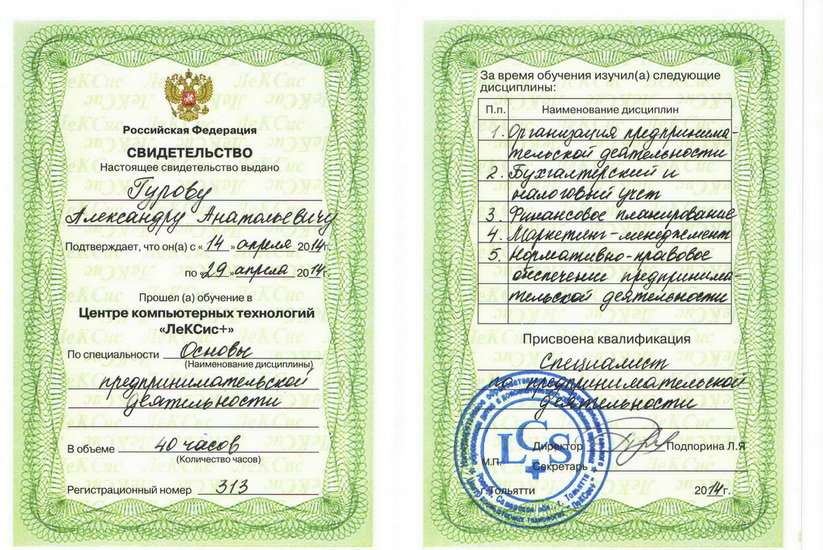 Российская Федерация
СВИДЕТЕЛЬСТВО
Настоящее свидетельство выдано
Гурову
Александру Анатольевичу
Подтверждает, что он(а) с «14» апреля 2014г.
по «29» апреля 2014г.
Прошел (а) обучение в
Центре компьютерных технологий
«ЛеКСис+»
По специальности Основы
(Наименование дисциплины)
предпринимательской
деятельности
В объеме 40 часов
(Количество часов)
Регистрационный номер 313
За время обучения изучил(а) следующие
дисциплины:
П.п. Наименование дисциплин
1. Организация предпринима-
тельской деятельности
2. Бухгалтерский и
налоговый учет
3. Финансовое планирование
4. Маркетинг-менеджмент
5. Нормативно-правовое
обеспечение предпринима-
тельской деятельности
Присвоена квалификация
Специалист
по предпринимательской
деятельности
Директор Подпорина Л.Я
М.П.
Секретарь
LCS
Тольятти 2014г.